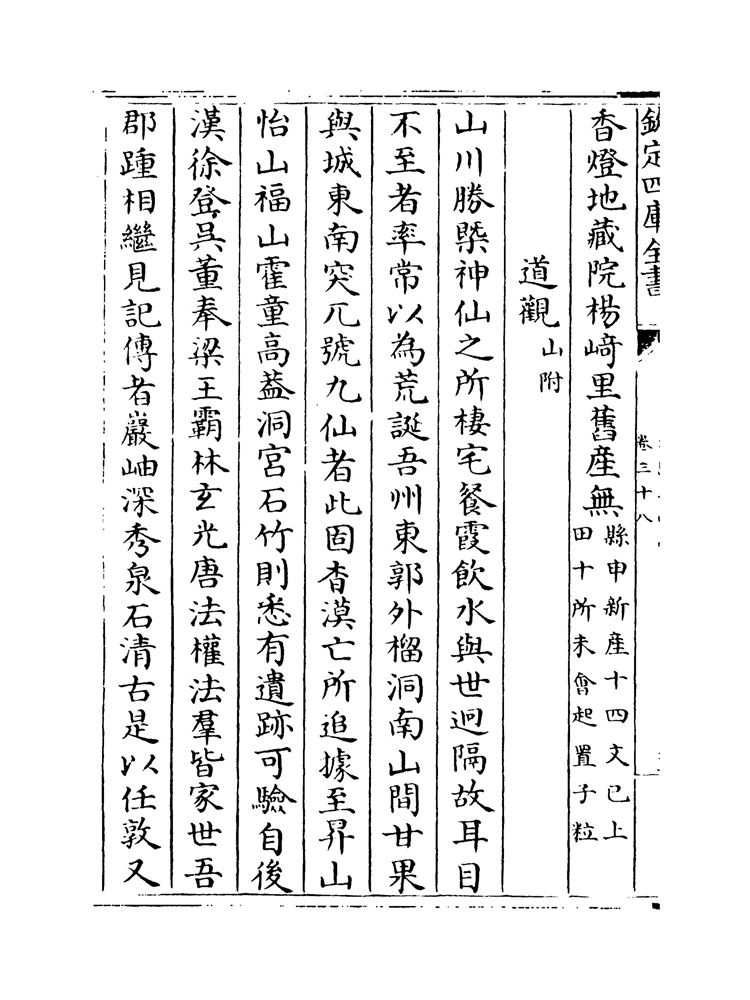 欽定四庫全書
卷三十八
香燈地藏院楊﨑里舊産無縣申新産十四文已上田十所未會起置子粒
道觀山附
山川勝槩神仙之所棲宅餐霞飲水與世迥隔故耳目
不至者率常以為荒誕吾州東郭外榴洞南山間甘果
與城東南突兀號九仙者此固杳漠亡所追據至昇山
怡山福山霍童高葢洞宮石竹則悉有遺跡可驗自後
漢徐登吳董奉梁王霸林玄光唐法權法羣皆家世吾
郡踵相繼見記傳者巖岫深秀泉石清古是以任敦又